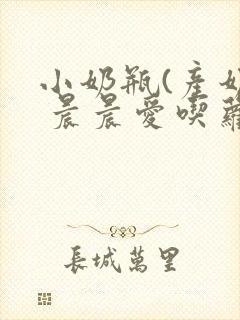 小奶瓶(產奶
晨晨愛喫蘿
長城萬里